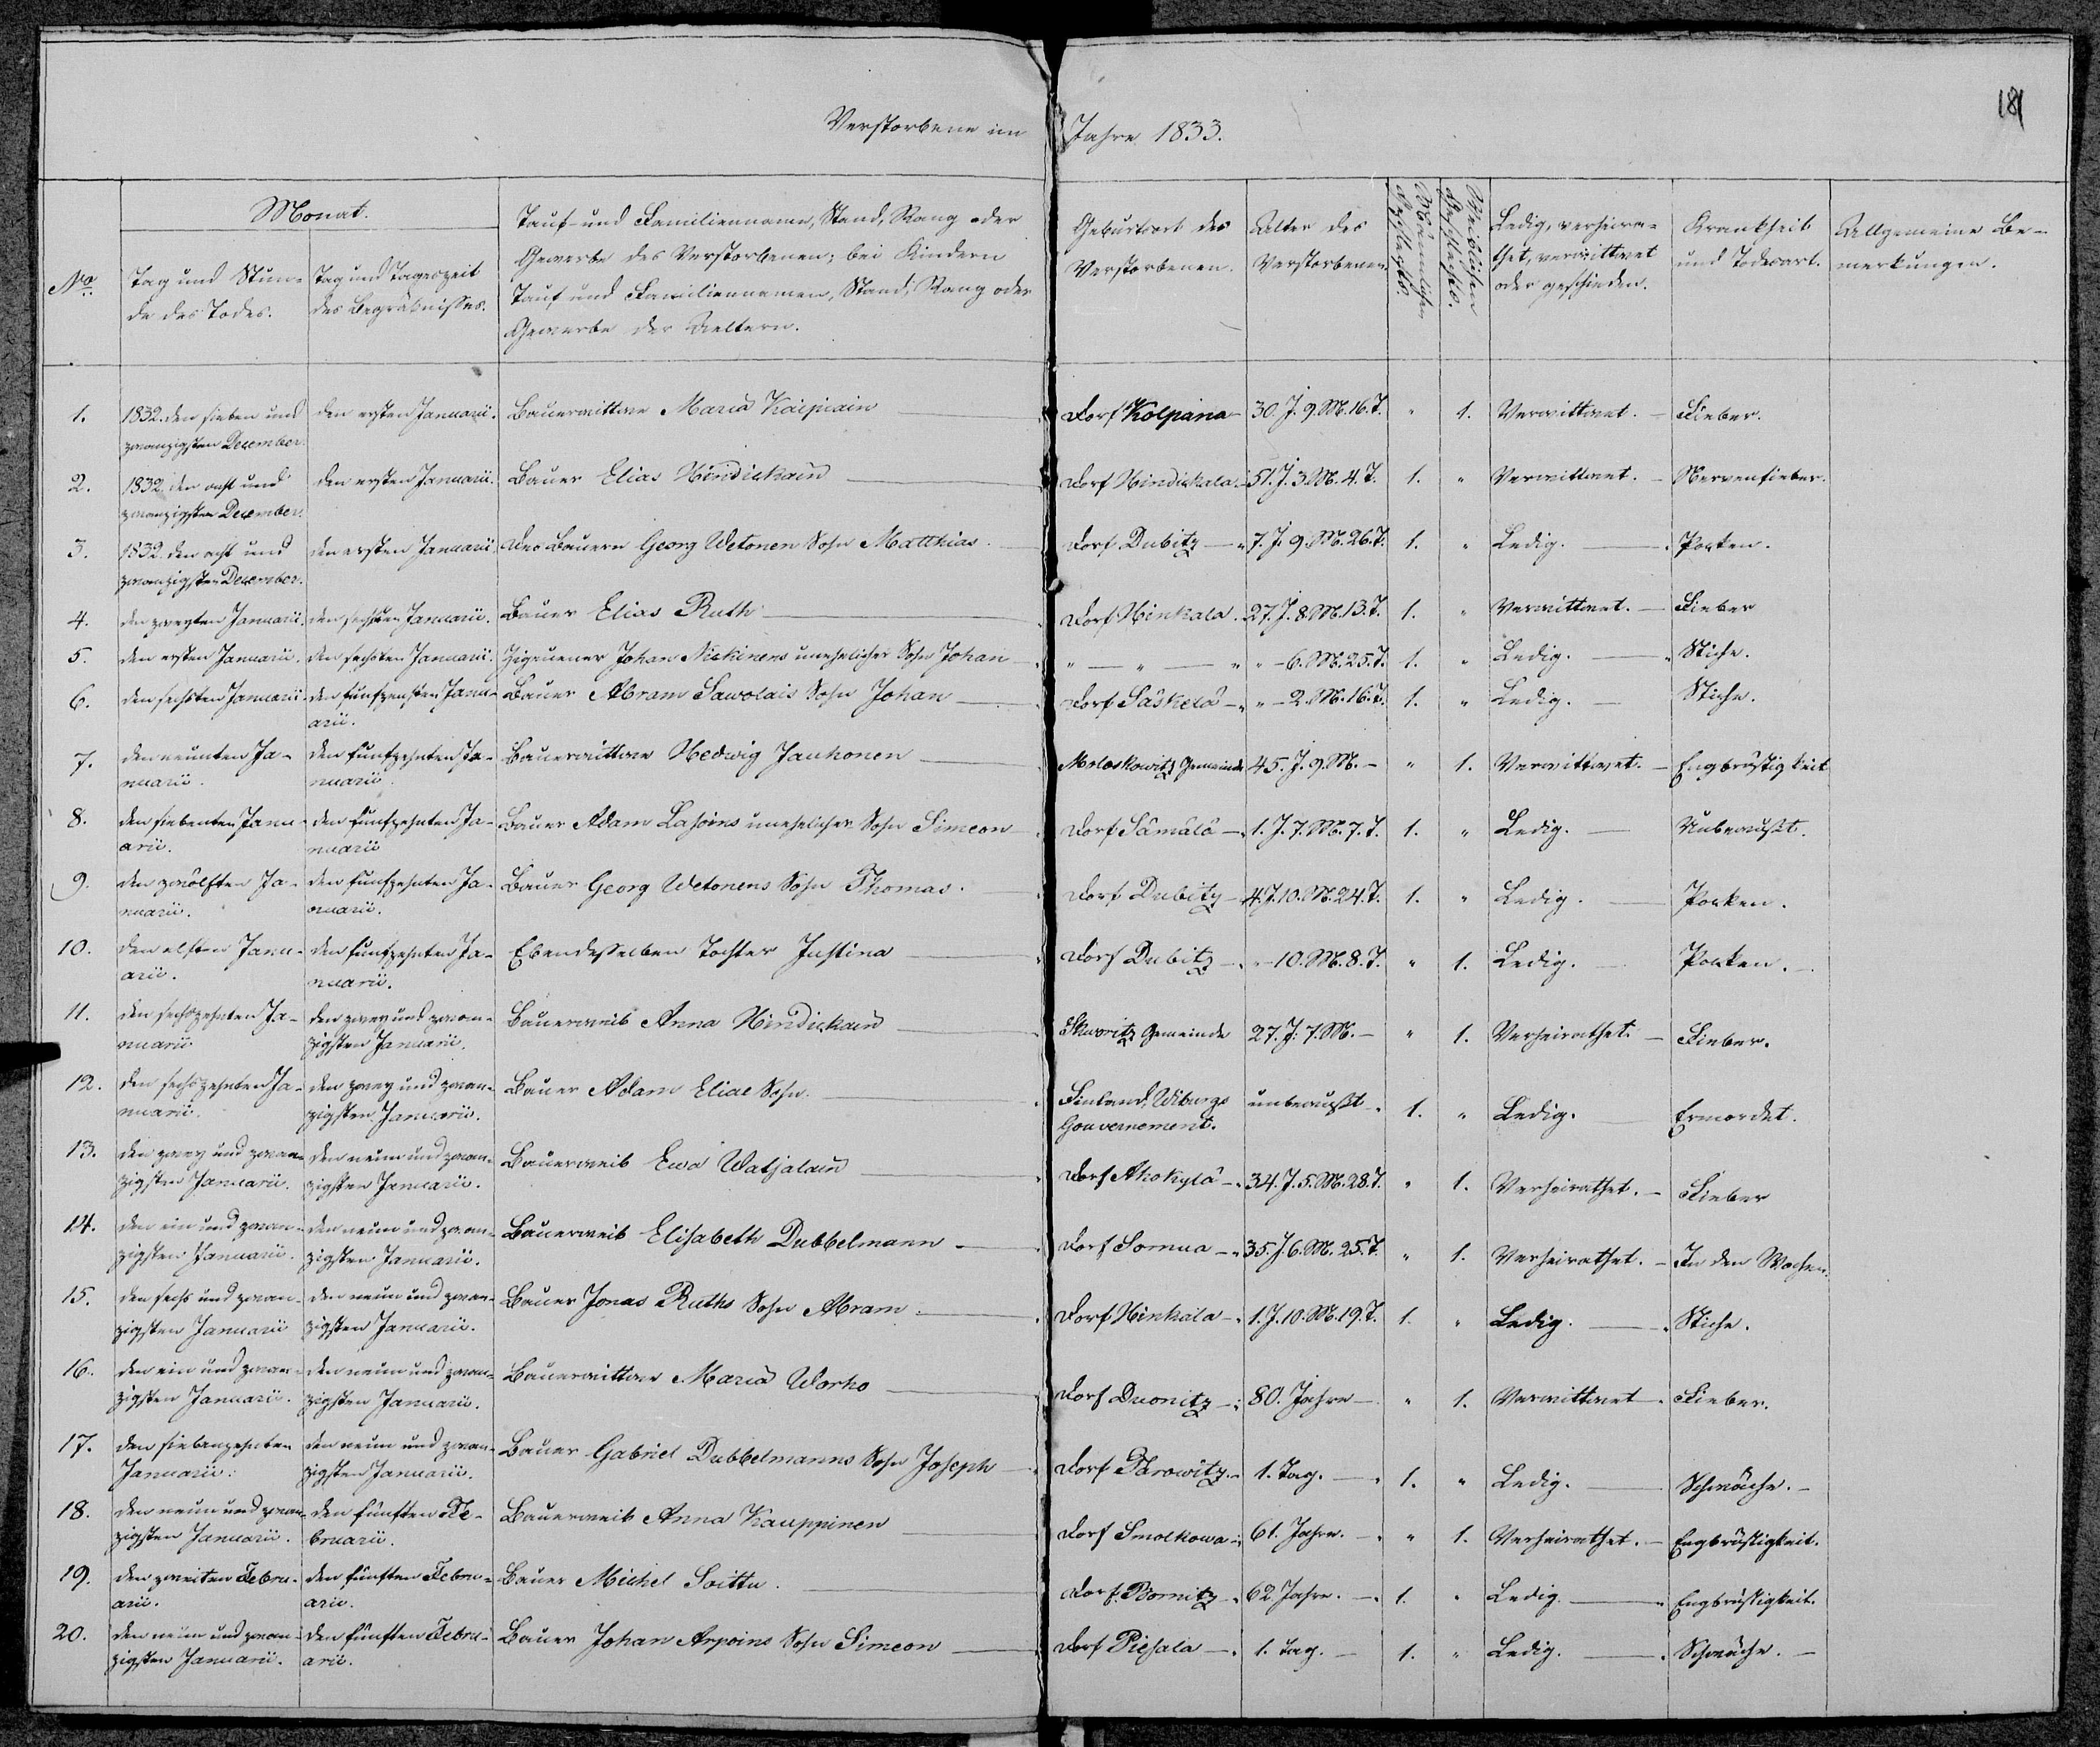 181
Verstorbene im Jahre 1833.
No
Monat.
Tag und Stun-
de des Todes.
Tag und Tageszeit
des Begräbnisses.
Tauf- und Familienname, Stand, Rang oder
Gewerbe des Verstorbenen; bei Kindern
Tauf und Familiennamen, Stand, Rang oder
Gewerbe der Aeltern.
Geburtsort des
Verstorbenen.
Alter des
Verstorbenen.
Männlichen
Geschlechts.
Weiblichen
Geschlechts.
Ledig, verheira-
thet, verwittwet
oder geschieden.
Krankheit
und Todesart.
Allgemeine Be-
merkungen.
1. 1832. den sieben und den ersten Januarii. Bauerwittwe Maria Kaipiain Dorf Kolpana 30. J. 9. M. 16. T. " 1. Verwittwet. Fieber.
zwanzigsten December.
2. 1832. den acht und den ersten Januarii. Bauer Elias Hindickain Dorf Hindickala. 51. J. 3. M. 4. T. 1. " Verwittwet. Nervenfieber.
zwanzigsten December.
3. 1832. den acht und den ersten Januarii. Des Bauern Georg Wetonen Sohn Matthias. Dorf Dubitz 7. J. 9. M. 26. T. 1. " Ledig. Pocken.
zwanzigsten December.
4. den zweyten Januarii. den sechsten Januarii. Bauer Elias Ruth Dorf Hinkala. 27. J. 8. M. 13. T. 1. " Verwittwet. Fieber
5. den ersten Januarii. den sechsten Januarii. Zigeuner Johan Nickinens unehelicher Sohn Johan " — " — " " — 6. M. 25. T. 1. " Ledig. Stiche.
6. den sechsten Januarii den fünfzehnten Janu- Bauer Abram Sawolais Sohn Johan Dorf Säskelä " — 2. M. 16. T. 1. " Ledig. Stiche.
arii.
7. den neunten Ja- den fünfzehnten Ja- Bauerwittwe Hedwig Jauhonen Moloskowitz Gemeinde 45. J. 9. M. — " 1. Verwittwet. Engbrüstigkeit
nuarii. nuarii
8. den siebenten Janu- den fünfzehnten Ja- Bauer Adam Lasoins unehelicher Sohn Simeon Dorf Sämälä 1. J. 7. M. 7. T. 1. " Ledig. Unbewußt.
arii. nuarii
9. den zwölften Ja- den fünfzehnten Ja- Bauer Georg Wetonens Sohn Thomas. Dorf Dubitz 4. J. 10. M. 24. T. 1. " Ledig. Pocken.
nuarii. nuarii.
10. den elften Janu- den fünfzehnten Ja- Ebendesselben Tochter Justina Dorf Dubitz " — 10. M. 8. T. " 1. Ledig. Pocken.
arii. nuarii.
11. den sechszehnten Ja- den zwey und zwan- Bauerweib Anna Hindickain Skworitz Gemeinde 27. J. 7. M. — " 1. Verheirathet. Fieber.
nuarii. zigsten Januarii.
12. den sechszehnten Ja- den zwey und zwan- Bauer Adam Eliae Sohn. Finland, Wiburgs unbewußt. 1. " Ledig. Ermordet.
nuarii. zigsten Januarii. Gouvernement.
13. den zwey und zwan- den neun und zwan- Bauerweib Ewa Watjalain Dorf Akokylä 34. J. 5. M. 28. T. " 1. Verheirathet. Fieber
zigsten Januarii. zigsten Januarii.
14. den ein und zwan- den neun und zwan- Bauerweib Elisabeth Dubbelmann Dorf Somua 35. J. 6. M. 25. T. " 1. Verheirathet. In den Wochen.
zigsten Januarii. zigsten Januarii.
15. den sechs und zwan- den neun und zwan- Bauer Jonas Ruths Sohn Abram. Dorf Hinkala 1. J. 10. M. 19. T. 1. " Ledig. Stiche.
zigsten Januarii zigsten Januarii.
16. den ein und zwan- den neun und zwan- Bauerwittwe Maria Worho Dorf Duonitz 80. Jahre " 1. Verwittwet. Fieber.
zigsten Januarii. zigsten Januarii.
17. den siebenzehnten den neun und zwan- Bauer Gabriel Dubbelmanns Sohn Joseph Dorf Parowitz. 1. Tag. 1. " Ledig. Schwäche.
Januarii. zigsten Januarii.
18. den neun und zwan- den fünften Fe- Bauerweib Anna Kauppinen Dorf Smolkowa 61. Jahre. " 1. Verheirathet. Engbrüstigkeit.
zigsten Januarii. bruarii.
19. den zweiten Febru- den fünften Febru- Bauer Michel Soittu. Dorf. Bornitz 62 Jahre. 1. " Ledig. Engbrüstigkeit.
arii. arii.
20. den neun und zwan- den fünften Febru- Bauer Johan Arpoins Sohn Simeon Dorf Piesala 1. Tag. 1. " Ledig. Schwäche.
zigsten Januarii. arii.